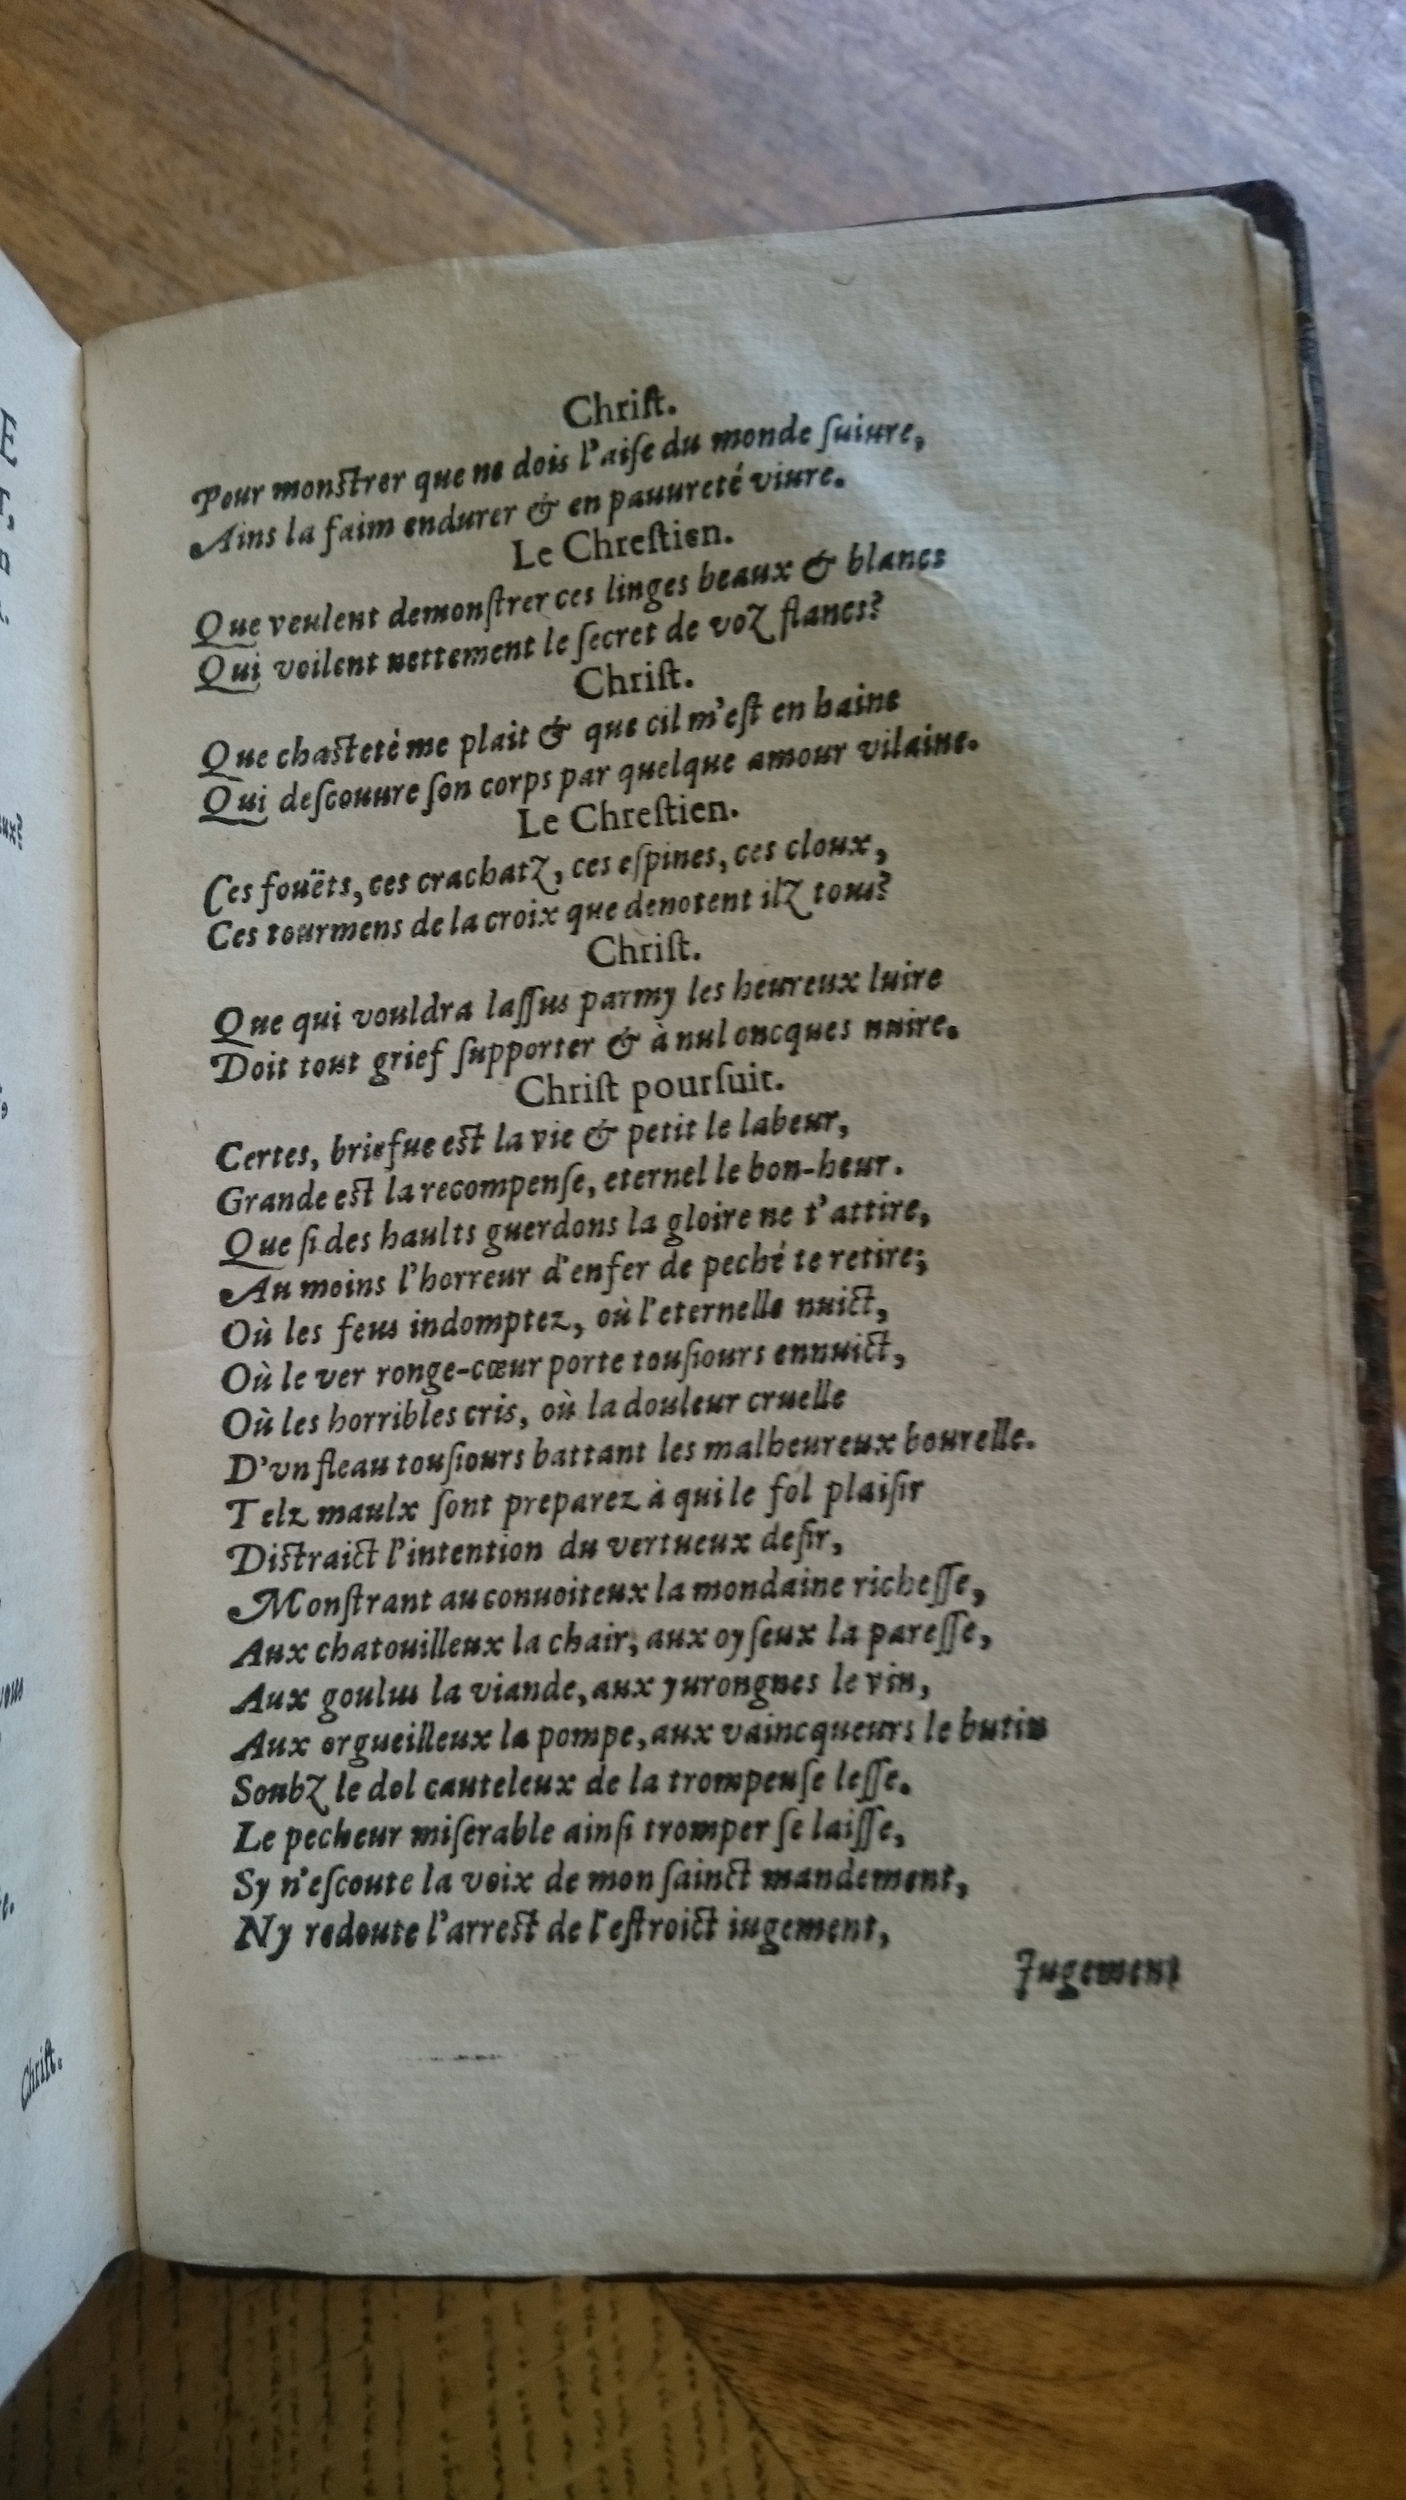 Chriſt.
Pour monſtrer que ne dois l'aiſe du monde ſuiure,
Ains la faim endurer & en pauureté viure.
Le Chreſtien.
Que veulent demonſtrer ces linges beaux & blancs
Qui voilent nettement le ſecret de voz flancs?
Chriſt.
Que chaſtetè me plait & que cil m'eſt en haine
Qui deſcouure ſon corps par quelque amour vilaine.
Le Chreſtien.
Ces fouëts, ces crachatz, ces eſpines, ces cloux,
Ces tourmens de la croix que denotent ilz tous?
Chriſt.
Que qui vouldra laſſus parmy les heureux luire
Doit tout grief ſupporter & à nul oncques nuire.
Chriſt pourſuit.
Certes, briefue eſt la vie & petit le labeur,
Grande eſt la recompenſe, eternel le bon-heur.
Que ſi des haults guerdons la gloire ne t'attire,
Au moins l'horreur d'enfer de peché te retire;
Où les feus indomptez, où l'eternelle nuict,
Où le ver ronge-cœur porte touſiours ennuict,
Où les horribles cris, où la douleur cruelle
D'vn fleau touſiours battant les malheureux bourelle.
Telz maulx ſont preparez à qui le fol plaiſir
Diſtraict l'intention du vertueux deſir,
Monſtrant au conuoiteux la mondaine richeſſe,
Aux chatouilleux la chair, aux oyſeux la pareſſe,
Aux goulus la viande, aux yurongnes le vin,
Aux orgueilleux la pompe, aux vaincqueurs le butin
Soubz le dol cauteleux de la trompeuſe leſſe.
Le pecheur miſerable ainſi tromper ſe laiſſe,
Sy n'eſcoute la voix de mon ſainct mandement,
Ny redoute l'arreſt de l'eſtroict iugement,
Jugement
Chriſt.